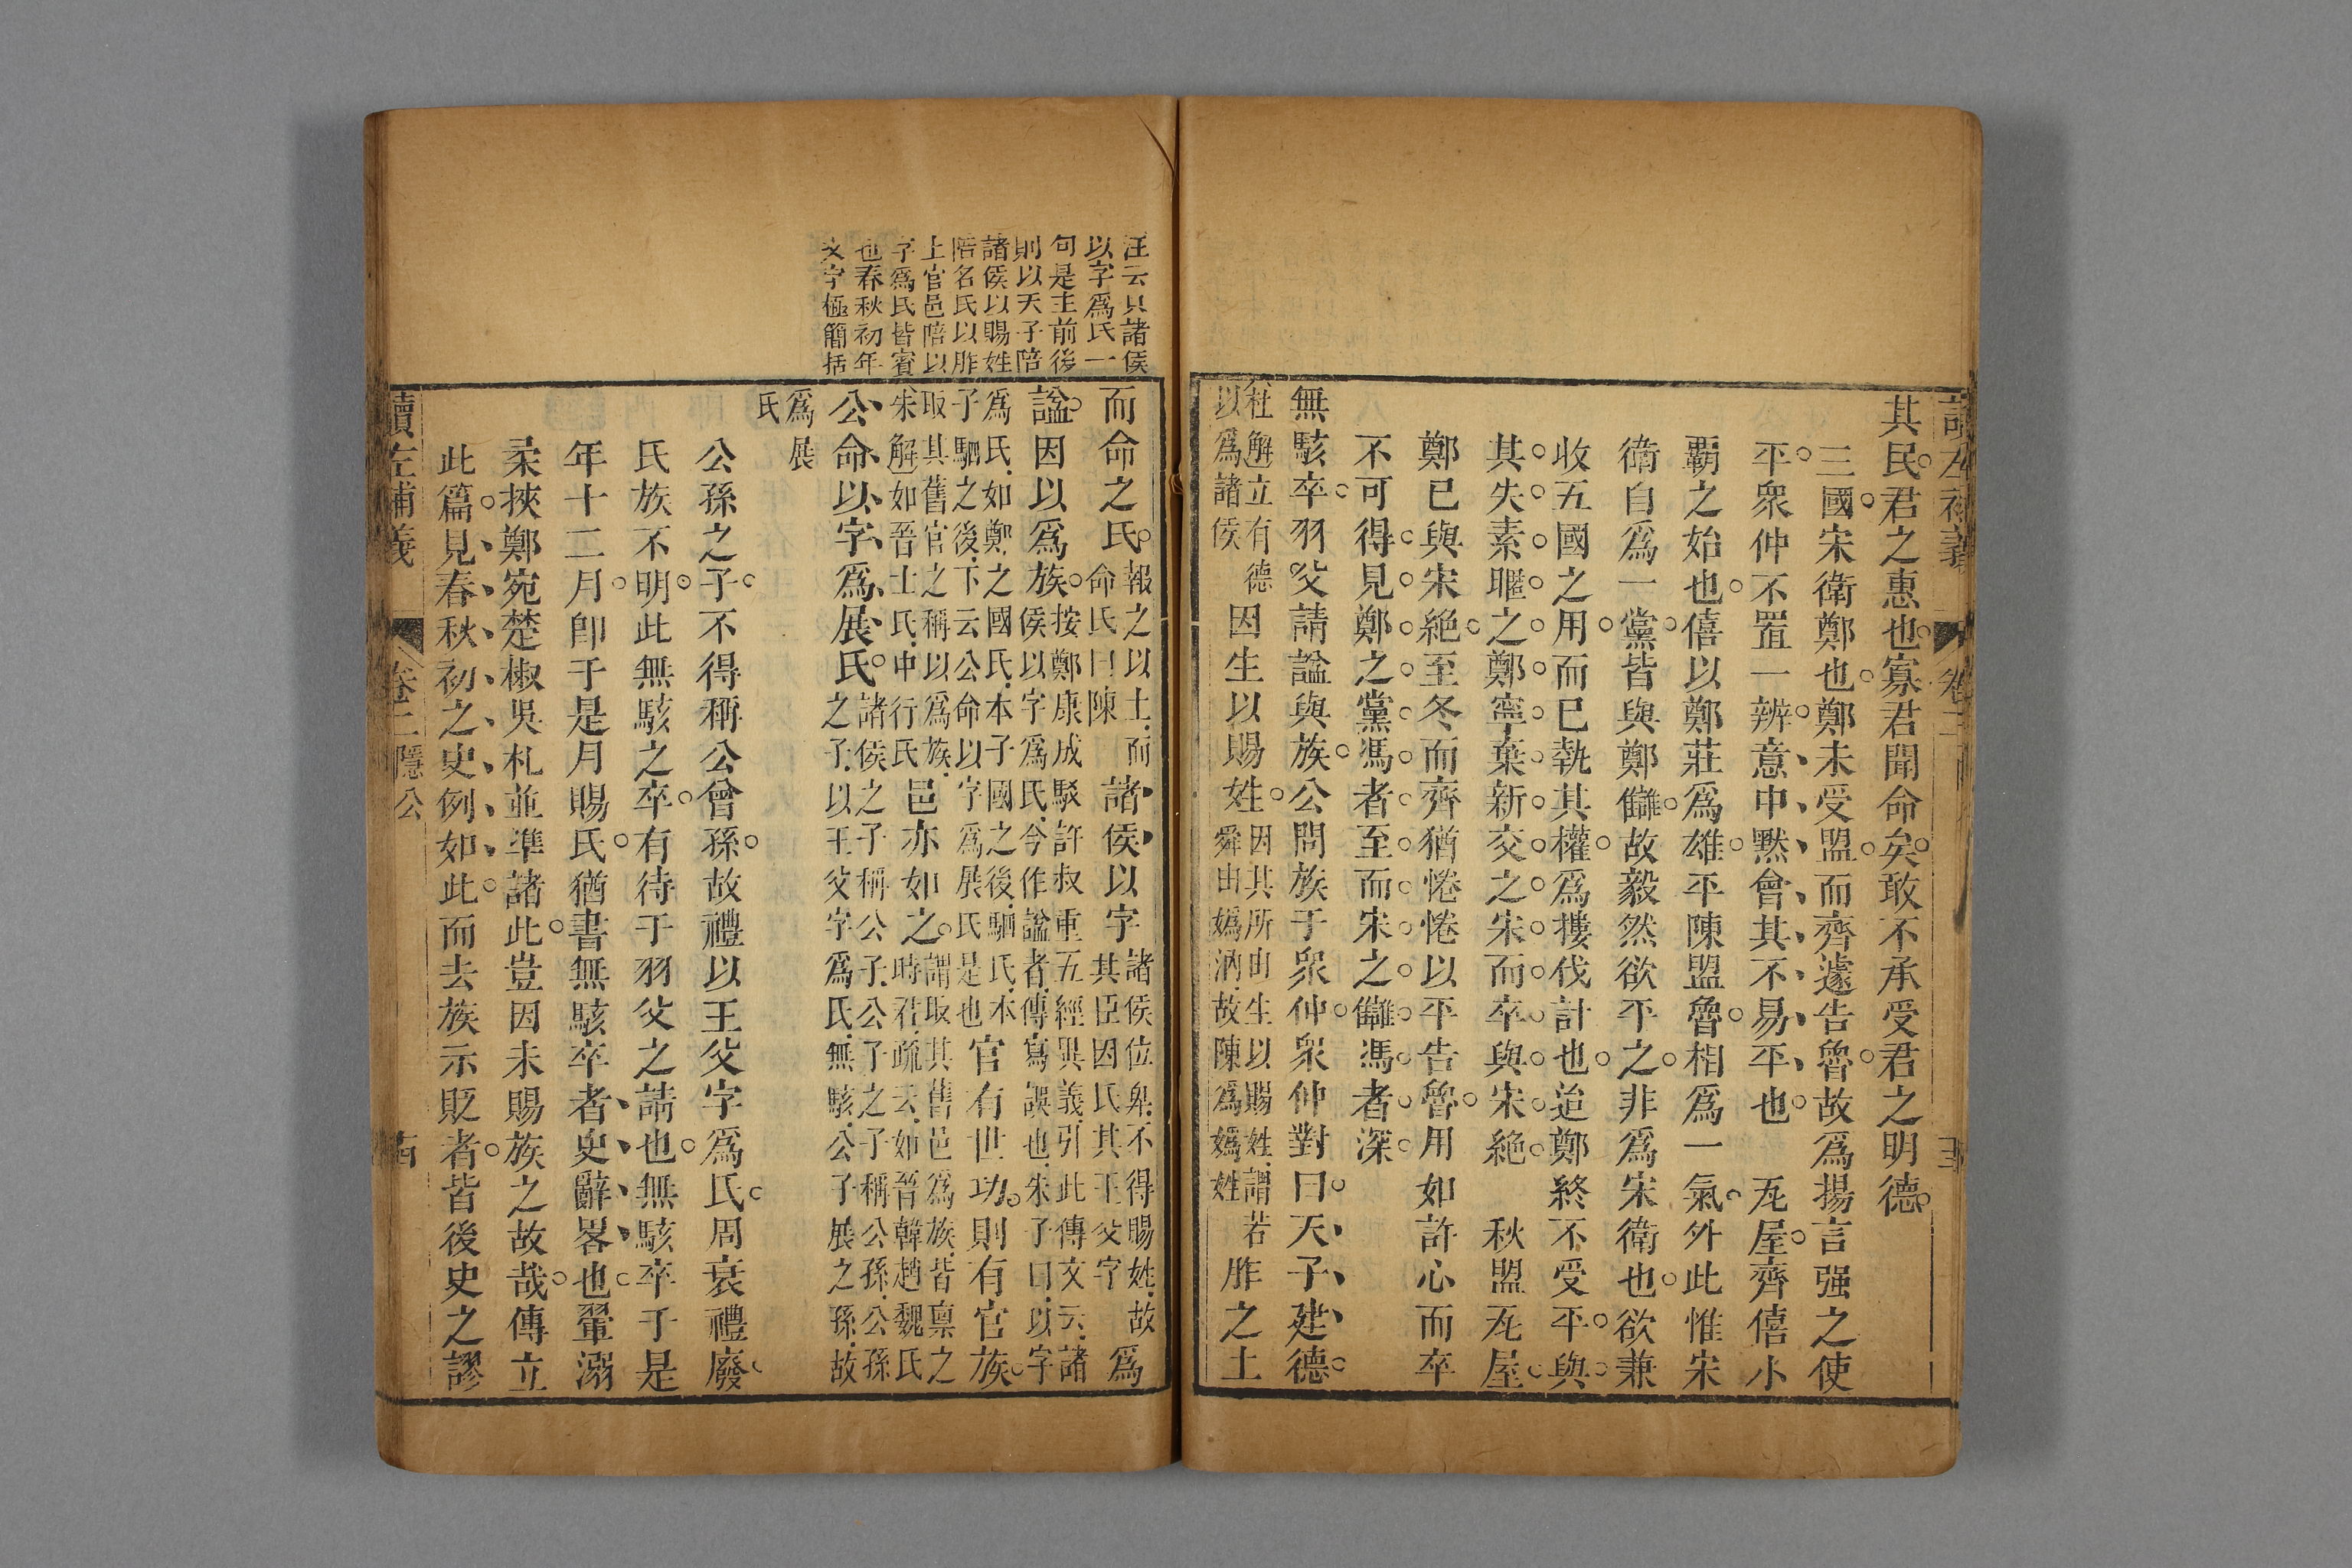 讀左補義
卷二
其民君之惠也寡君聞命矣敢不承受君之明德
三國宋衛鄭也鄭未受盟而齊遽告魯故爲揚言强之使
平衆仲不置一辨意中黙會其不易平也 瓦屋齊僖小
覇之始也僖以鄭莊爲雄平陳盟魯相爲一氣外此惟宋
衛自爲一黨皆與鄭讎故毅然欲平之非爲宋衛也欲兼
收五國之用而已執其權爲摟伐計也迨鄭終不受平與
其失素暱之鄭寧棄新交之宋而卒與宋絶 秋盟瓦屋
鄭已與宋絶至冬而齊猶惓惓以平告魯用如許心而卒
不可得見鄭之黨馮者至而宋之讎馮者深
無駭卒羽父請諡與族公問族于衆仲衆仲對曰天子建德
杜解立有德
以爲諸侯
因生以賜姓
因其所由生以賜姓謂若
舜由嬀汭故陳爲嬀姓
胙之土
汪云只諸侯
以字爲氏一
句是主前後
則以天子陪
諸侯以賜姓
陪名氏以胙
上官邑陪以
字爲氏皆賓
也春秋初年
文字極簡括
而命之氏
報之以土而
命氏曰陳
諸侯以字
諸侯位卑不得賜姓故
其臣因氏其王父字
爲
諡因以爲族
按鄭康成駁許叔重五經異義引此傳文云諸
侯以字爲氏今作諡者傳寫誤也朱子曰以字
爲氏如鄭之國氏本子國之後駟氏本
子駟之後下云公命以字爲展氏是也
官有世功則有官族
取其舊官之稱以爲族
朱解如晉士氏中行氏
邑亦如之
謂取其舊邑爲族皆稟之
時君疏云如晉韓趙魏氏
公命以字爲展氏
諸侯之子稱公子公子之子稱公孫公孫
之子以王父字爲氏無駭公子展之孫故
爲展
氏
公孫之子不得稱公曾孫故禮以王父字爲氏周衰禮廢
氏族不明此無駭之卒有待于羽父之請也無駭卒于是
年十二月卽于是月賜氏猶書無駭卒者史辭畧也翬溺
柔挾鄭宛楚椒吳札並準諸此豈因未賜族之故哉傳立
此篇見春秋初之史例如此而去族示貶者皆後史之謬
讀左補義
卷二隱公